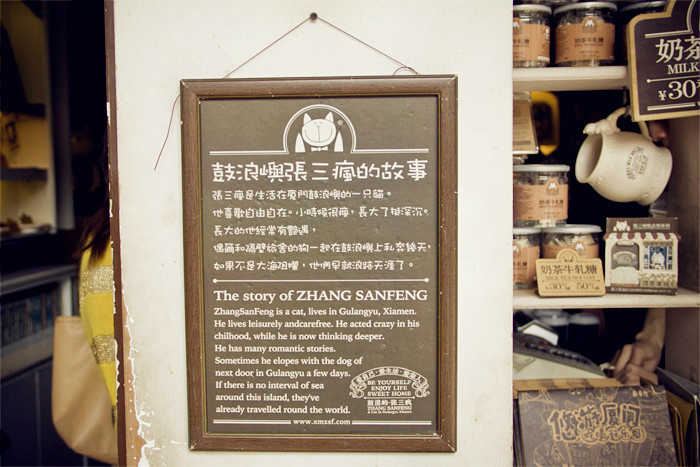 鼓浪嶼張三瘋的故事
張三瘋是生活在廈門鼓浪嶼的一只貓。
他喜歡自由自在。小時候很瘋，長大了挺深沉。
長大的他經常有豔遇，
偶爾和隔壁旅舍的狗一起在鼓浪嶼上私奔幾天，
如果不是大海阻攔，他們早就浪跡天涯了。
The story of ZHANG SANFENG
ZhangSanFeng is a cat, lives in Gulangyu, Xiamen.
He lives leisurely andcarefree. He acted crazy in his
chilhood, while he is now thinking deeper.
He has many romantic stories.
Sometimes he elopes with the dog of
next door in Gulangyu a few days.
If there is no interval of sea
around this island, they've
already travelled round the world.
BE YOURSELF
ENJOY LIFE
SWEET HOME
鼓浪屿·张三疯
ZHANG SANFENG
A Cat In Gulangyu Xiamen
www.xmzsf.com
奶茶
MILK
¥30
奶茶牛轧糖
奶茶牛轧糖
MILK TEA NOUGAT
¥30 50
悠游厦门